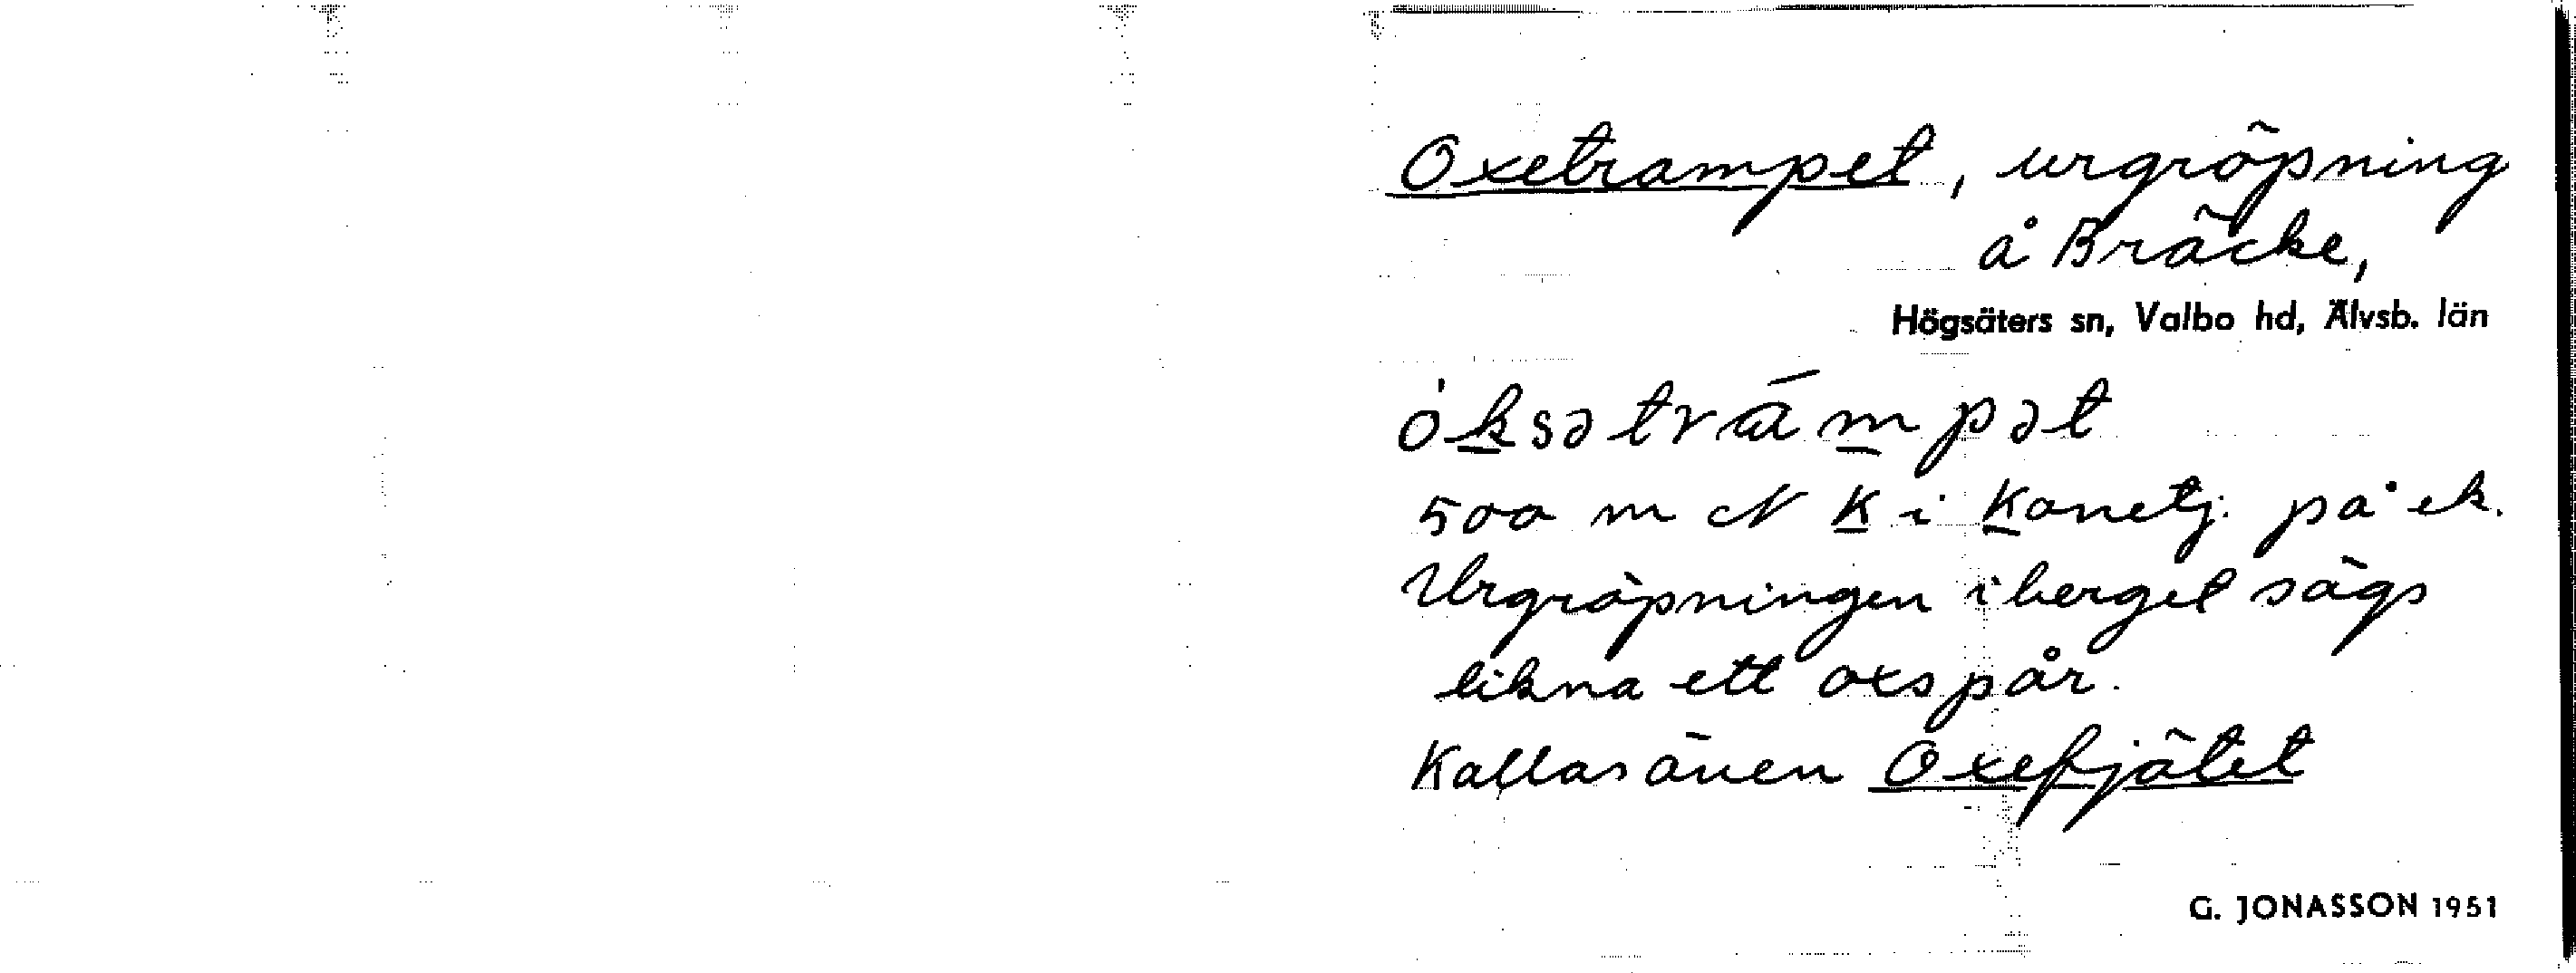 Oxetrampet, urgröpning
å Bräcke,
Högsäters sn, Valbo hd, Älvsb. län
óksətrámpət
500 m N K i Kanetj. på ek.
Urgröpningen i berget sägs
likna ett oxspår.
Kallas även Oxefjätet
G. JONASSON 1951